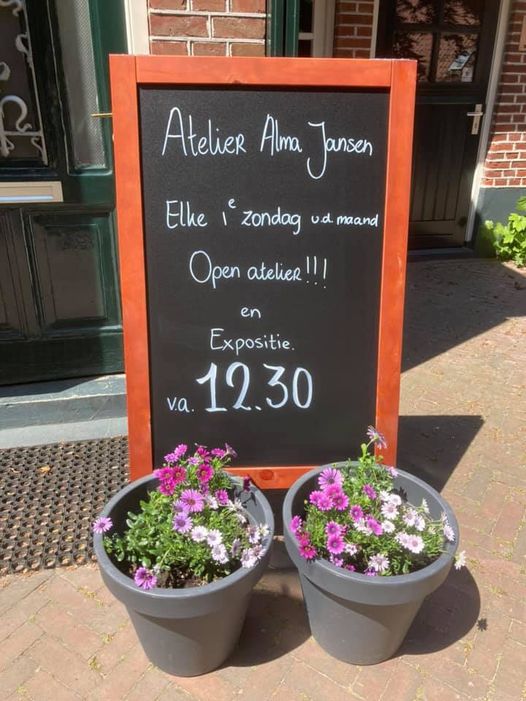 Atelier Alma Jansen
Elke 1e zondag v.d. maand
Open atelier!!!
en
Expositie.
v.a. 12.30